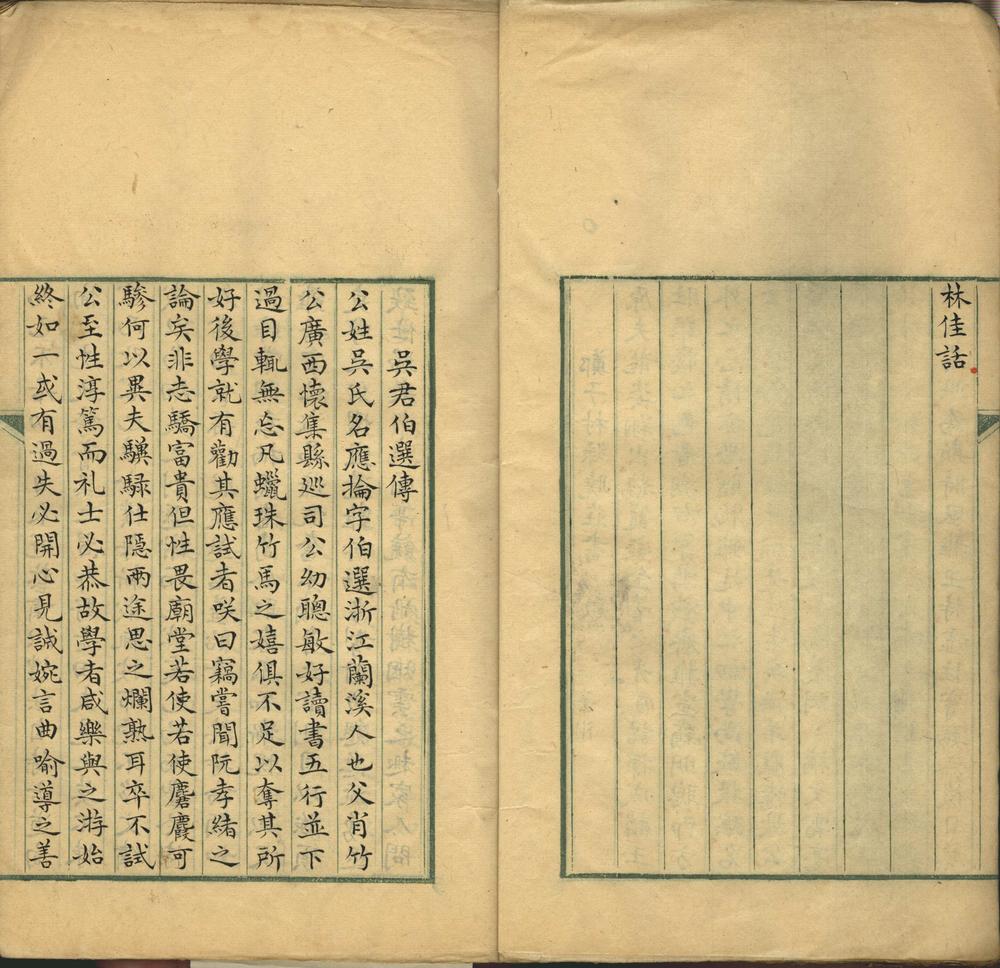 林佳話
吳君伯選傳
公姓吳氏名應掄字伯選浙江蘭溪人也父肖竹
公廣西懷集縣巡司公幼聰敏好讀書五行並下
過目輒無忘凡蠟珠竹馬之嬉俱不足以奪其所
好後學就有勸其應試者咲曰竊嘗聞阮孝緒之
論矣非志驕富貴但性畏廟堂若使若使麏麚可
驂何以異夫驥騄仕隱兩途思之爛熟耳卒不試
公至性淳篤而礼士必恭故學者咸樂與之游始
終如一或有過失必開心見誠婉言曲喻導之善